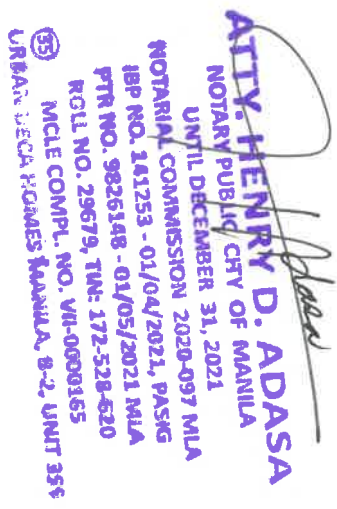 ATTY. HENRY D. ADASA
NOTARY PUBLIC CITY OF MANILA
UNTIL DECEMBER 31, 2021
NOTARIAL COMMISSION 2020-097 MLA
IBP NO. 141253 - 01/04/2021, PASIG
PTR NO. 9826148 - 01/05/2021 MLA
ROLL NO. 29679, TIN: 172-528-620
MCLE COMPL. NO. VII-0000165
URBAN DECA HOMES MANILA, B-2, UNIT 355